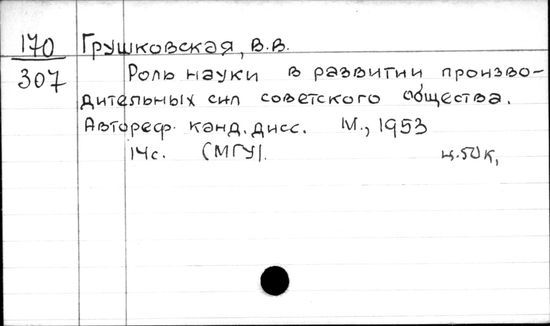 170 Грушковская, В.В.
307 Роль науки в развитии произво-
дительных сил советского общества.
Автореф. канд. дисс. М., 1953
14с. (МГУ). ц.50к,